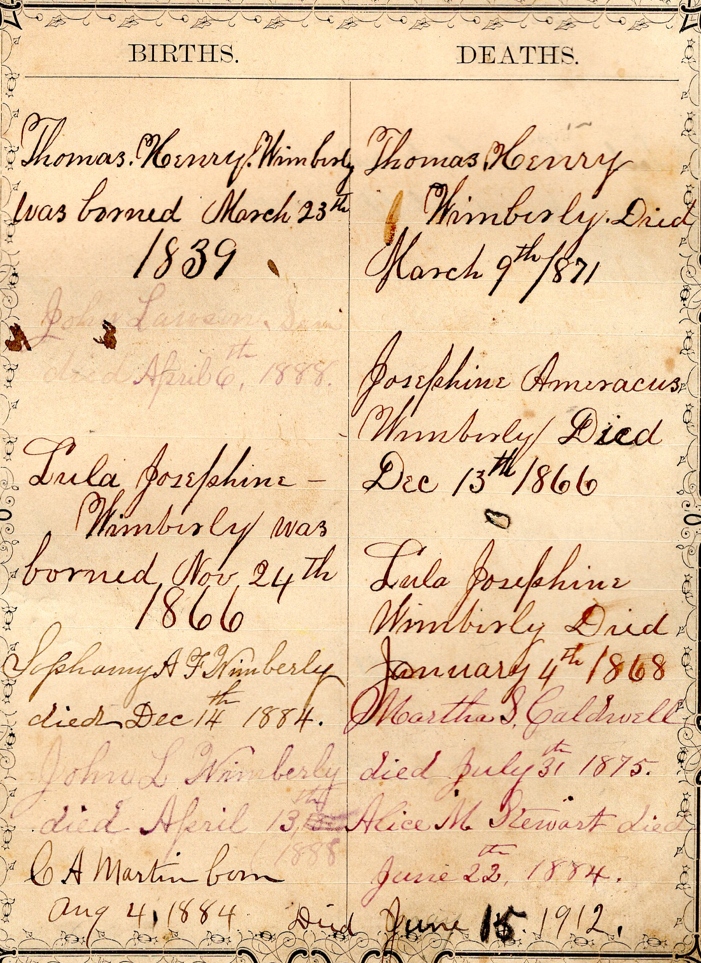 BIRTHS.
Thomas. Henry. Wimberly
was borned March 23th
1839
John Lawson
died April 6th, 1888.
Lula Josephine -
Wimberly was
borned Nov 24th
1866
Sophamy A F Wimberly
died Dec 14th 1884.
John L Wimberly
died April 13th
1888
C A Martin born
Aug 4, 1884
Died June 15. 1912.
DEATHS.
Thomas. Henry
Wimberly. Died
March 9th 1871
Josephine Ameracus
Wimberly Died
Dec 13th 1866
Lula Josephine
Wimberly Died
January 4th 1868
Martha S. Caldwell
died July 31th 1875.
Alice M Stewart died
June 22th, 1884.